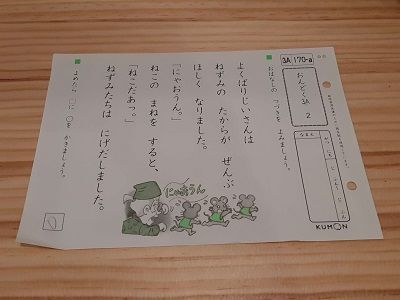 3A 170-a
おんどく3A
2
なまえ
がつ にち じ ふん じ ふん
KUMON
おはなしの つづきを よみましょう。
よくばりじいさんは
ねずみの たからが ぜんぶ
ほしく なりました。
「にゃおうん。」
ねこの まねを すると、
「ねこだあっ。」
ねずみたちは にげだしました。
にゃおうん
よめたら □に ○を かきましょう。